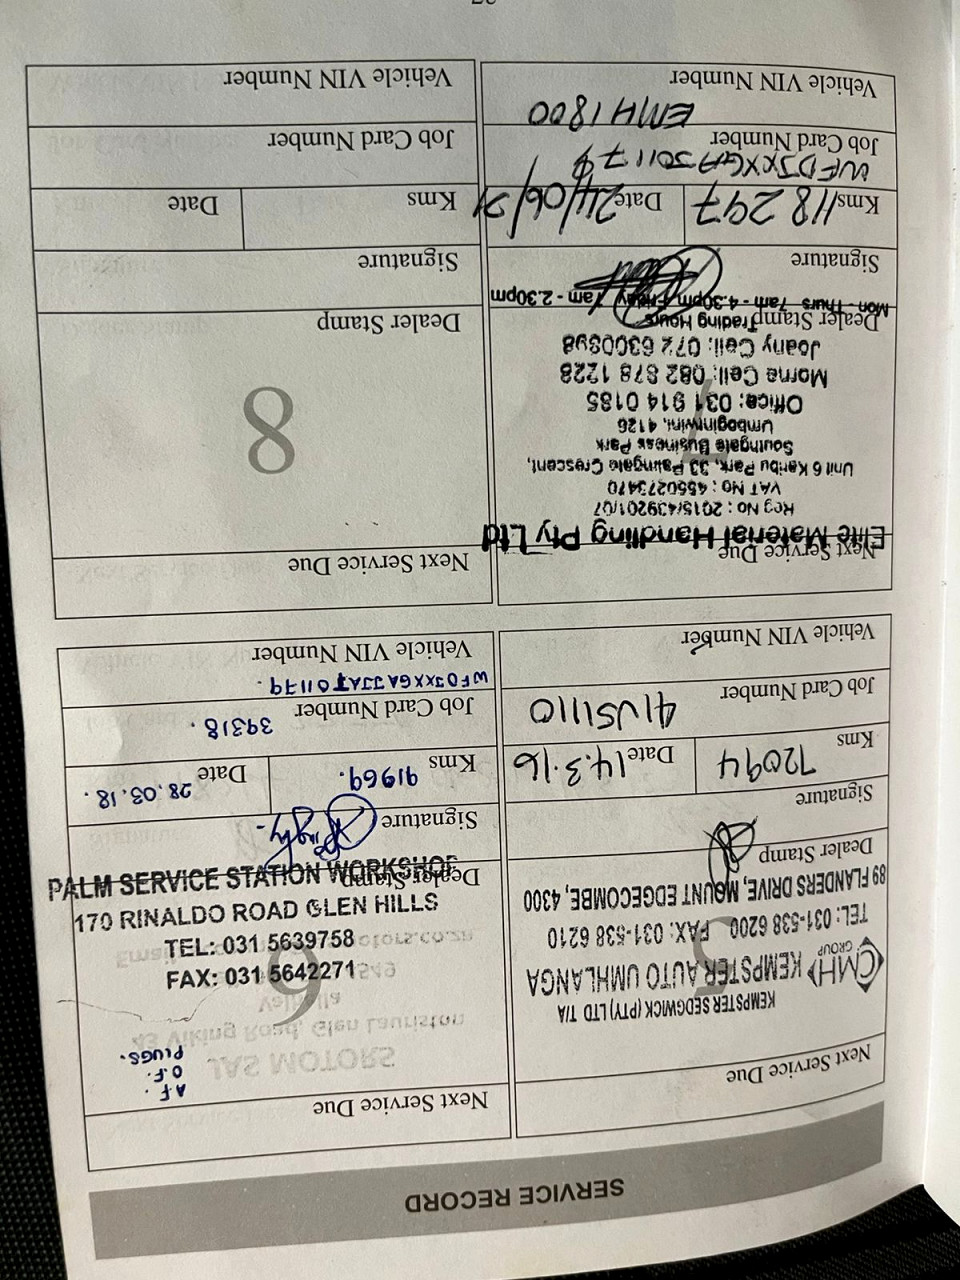 SERVICE RECORD
Next Service Due
KEMPSTER SEDGWICK (PTY) LTD T/A
CMH GROUP KEMPSTER AUTO UMHLANGA
TEL: 031-538 6200 FAX: 031-538 6210
89 FLANDERS DRIVE, MOUNT EDGECOMBE, 4300
5
Dealer Stamp
Signature
Kms 72094
Date 14.3.16
Job Card Number
41JS1110
Vehicle VIN Number
Next Service Due
A.F.
O.F.
PLUGS.
JAS MOTORS
43 Viking Road, Glen Lauriston
Valhalla
6
PALM SERVICE STATION WORKSHOP
170 RINALDO ROAD GLEN HILLS
TEL: 031 5639758
FAX: 031 5642271
Dealer Stamp
Signature
Kms 91969.
Date 28.03.18.
Job Card Number 39318.
Vehicle VIN Number
Next Service Due
Elite Material Handling Pty Ltd
Reg No: 2015/439201/07
VAT No: 4550273470
Unit 6 Karibu Park, 33 Palmgate Crescent,
Southgate Business Park
Umbogintwini, 4126
Office: 031 914 0185
Morne Cell: 082 878 1228
Joany Cell: 072 6300898
Trading Hours
Mon - Thurs 7am - 4.30pm Friday 7am - 2.30pm
7
Dealer Stamp
Signature
Kms 118 297
Date 24/06/21
Job Card Number
EMH1800
Vehicle VIN Number
Next Service Due
8
Dealer Stamp
Signature
Kms
Date
Job Card Number
Vehicle VIN Number